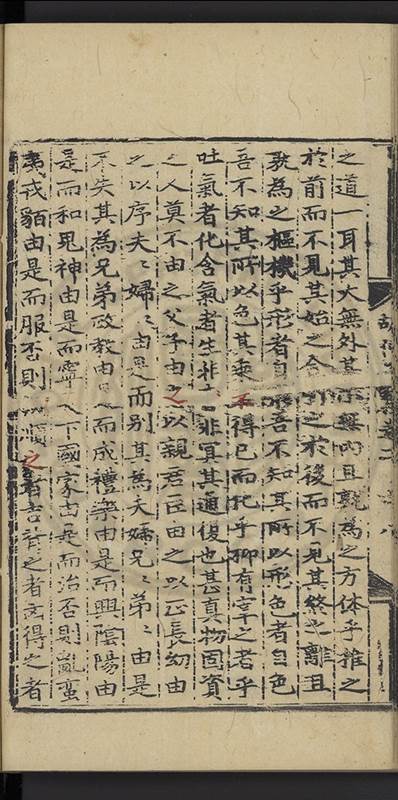 之道一耳其大無外其小無內且孰為之方体乎推之
於前而不見其始之合引之於後而不見其終之離且
孰為之樞機乎形者自形吾不知其所以形色者自色
吾不知其所以色其乘不得已而化乎抑有宰之者乎
吐氣者化含氣者生非一非冥其適復也甚真物固資
之人莫不由之父子由之以親君臣由之以正長幼由
之以序夫〻婦〻由是而別其為夫婦兄〻弟〻由是
不失其為兄弟政教由是而成禮樂由是而興陰陽由
是而和鬼神由是而寧天下國家由是而治否則亂蠻
夷戎貊由是而服否則 順之者吉背之者凶得之者